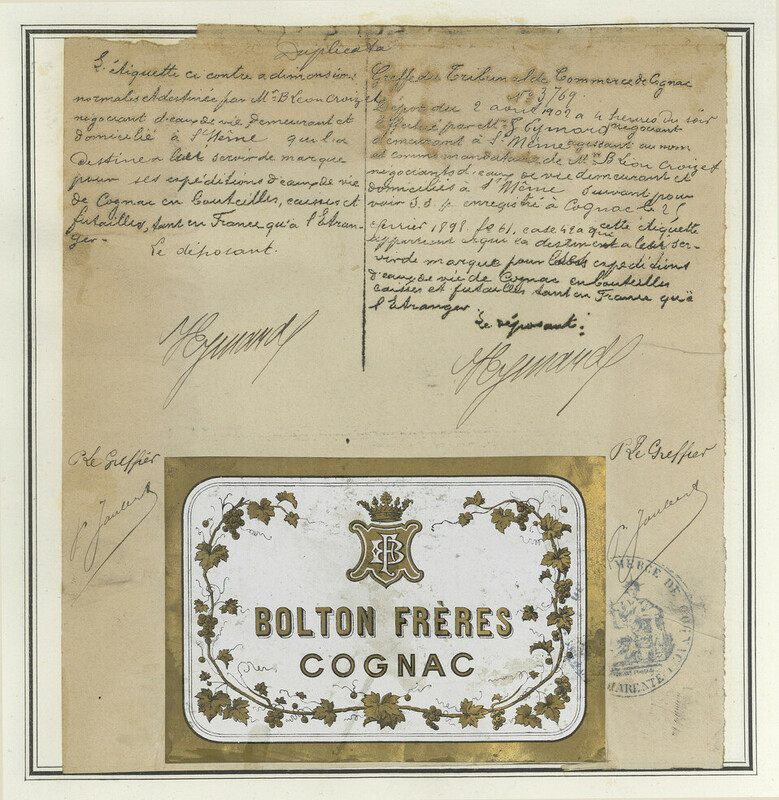 Duplicata
L'étiquette ci contre a dimensions
normales et destinée par Mr B Léon Croizet
négociant d'eaux de vie demeurant et
domicilié à St Même qui l'a
destine a lui servir de marque
pour ses expéditions d'eaux de vie
de Cognac en bouteilles, caisses et
futailles, tant en France qu'à l'Etran-
ger.
Le déposant.
Greffe du Tribunal de Commerce de Cognac
No 3769.
Dépôt du 2 août 1902 a 4 heures du soir
Effectué par Mr Eymard négociant
demeurant à St Même agissant au nom
et comme mandataire de Mr B Léon Croizet
négociants d'eaux de vie demeurant et
domiciliés à St Même suivant pou-
voir S.S.P. enregistré à Cognac le 21
février 1898 fo 61, case 42 a qui cette étiquette
appartient et qui la destinent a leur ser-
vir de marque pour leurs expéditions
d'eaux de vie de Cognac en bouteilles
caisses et futailles tant en France qu'à
l'Etranger
Le déposant:
Eymard
Eymard
P. Le Greffier
P. Le Greffier
FB
BOLTON FRÈRES
COGNAC
COMMERCE DE COGNAC
CHARENTE